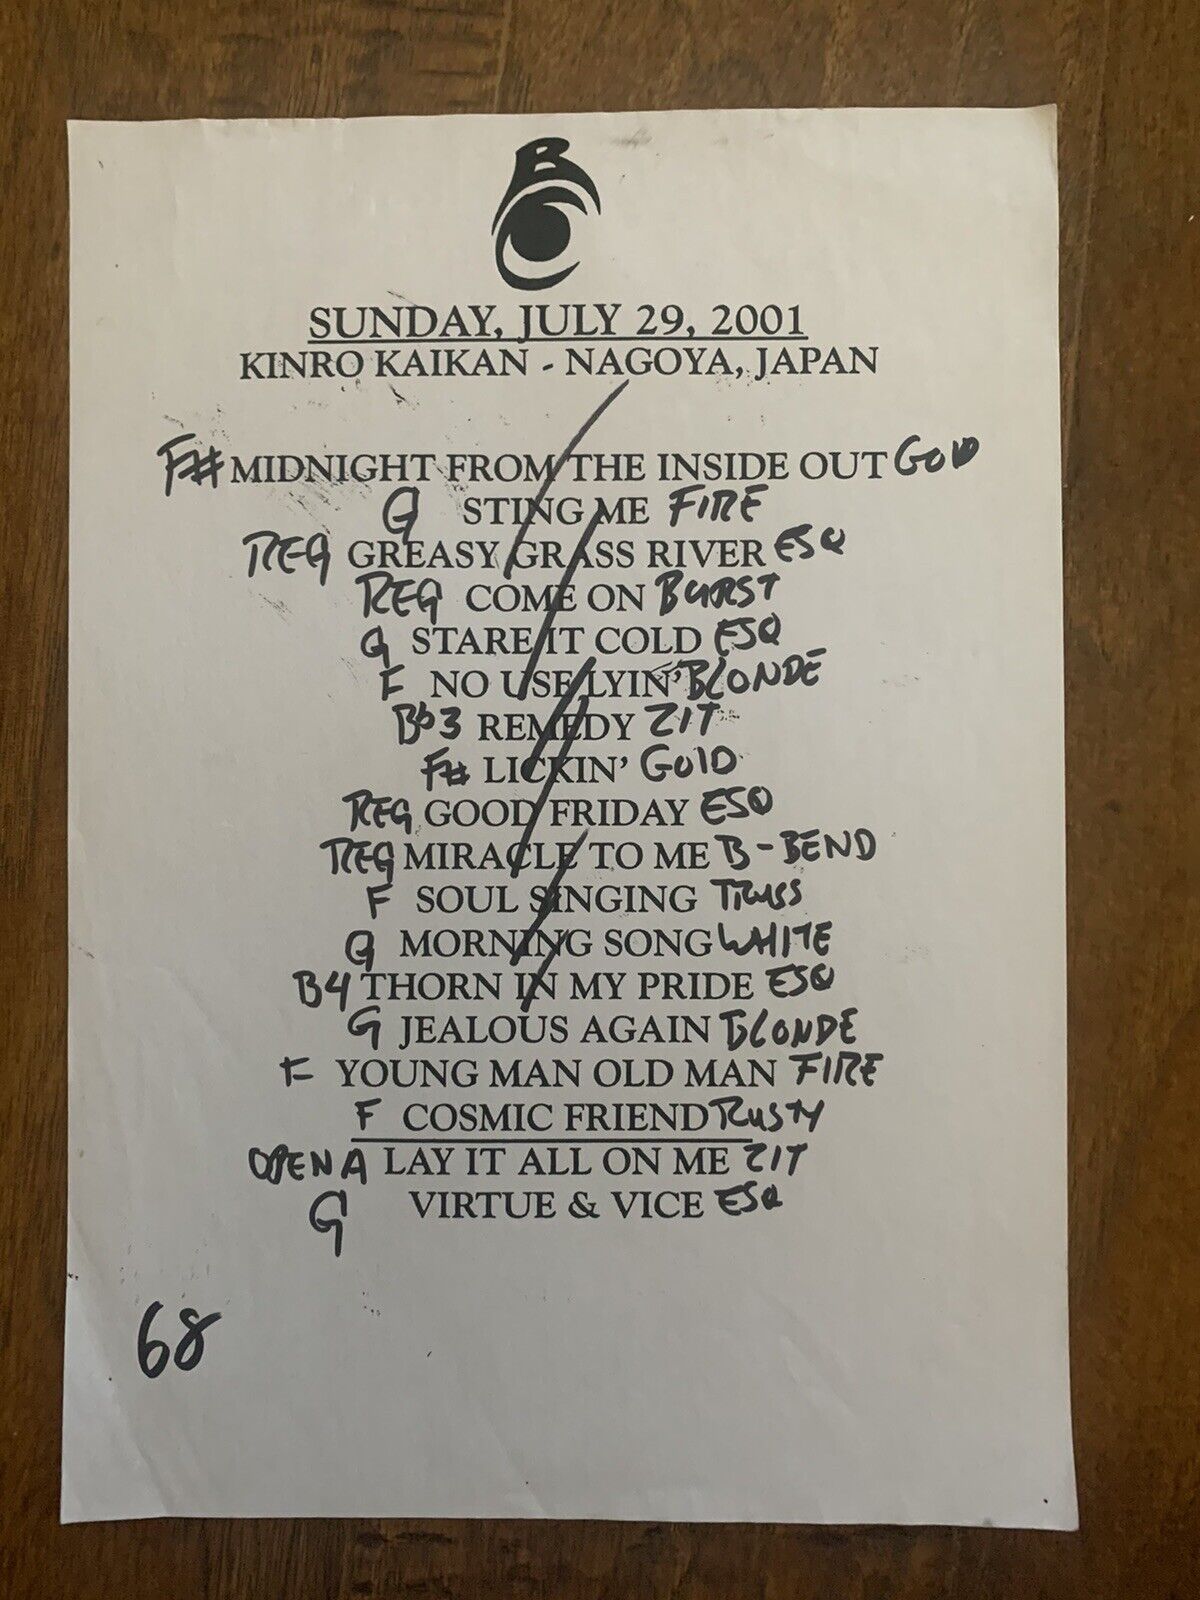 BC
SUNDAY, JULY 29, 2001
KINRO KAIKAN - NAGOYA, JAPAN
F# MIDNIGHT FROM THE INSIDE OUT GOLD
G STING ME FIRE
REG GREASY GRASS RIVER ESQ
REG COME ON BURST
G STARE IT COLD ESQ
F NO USE LYIN' BLONDE
Bb3 REMEDY ZIT
F# LICKIN' GOLD
REG GOOD FRIDAY ESQ
REG MIRACLE TO ME B-BEND
F SOUL SINGING TRUSS
G MORNING SONG WHITE
B4 THORN IN MY PRIDE ESQ
G JEALOUS AGAIN BLONDE
F YOUNG MAN OLD MAN FIRE
F COSMIC FRIEND RUSTY
OPEN A LAY IT ALL ON ME ZIT
G VIRTUE & VICE ESQ
68